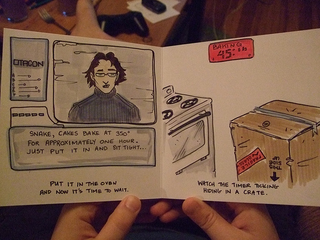 OTACON
SNAKE, CAKES BAKE AT 350°
FOR APPROXIMATELY ONE HOUR.
JUST PUT IT IN AND SIT TIGHT...
PUT IT IN THE OVEN
AND NOW IT'S TIME TO WAIT.
BAKING
45:00
WATCH THE TIMER TICKING
HIDING IN A CRATE.